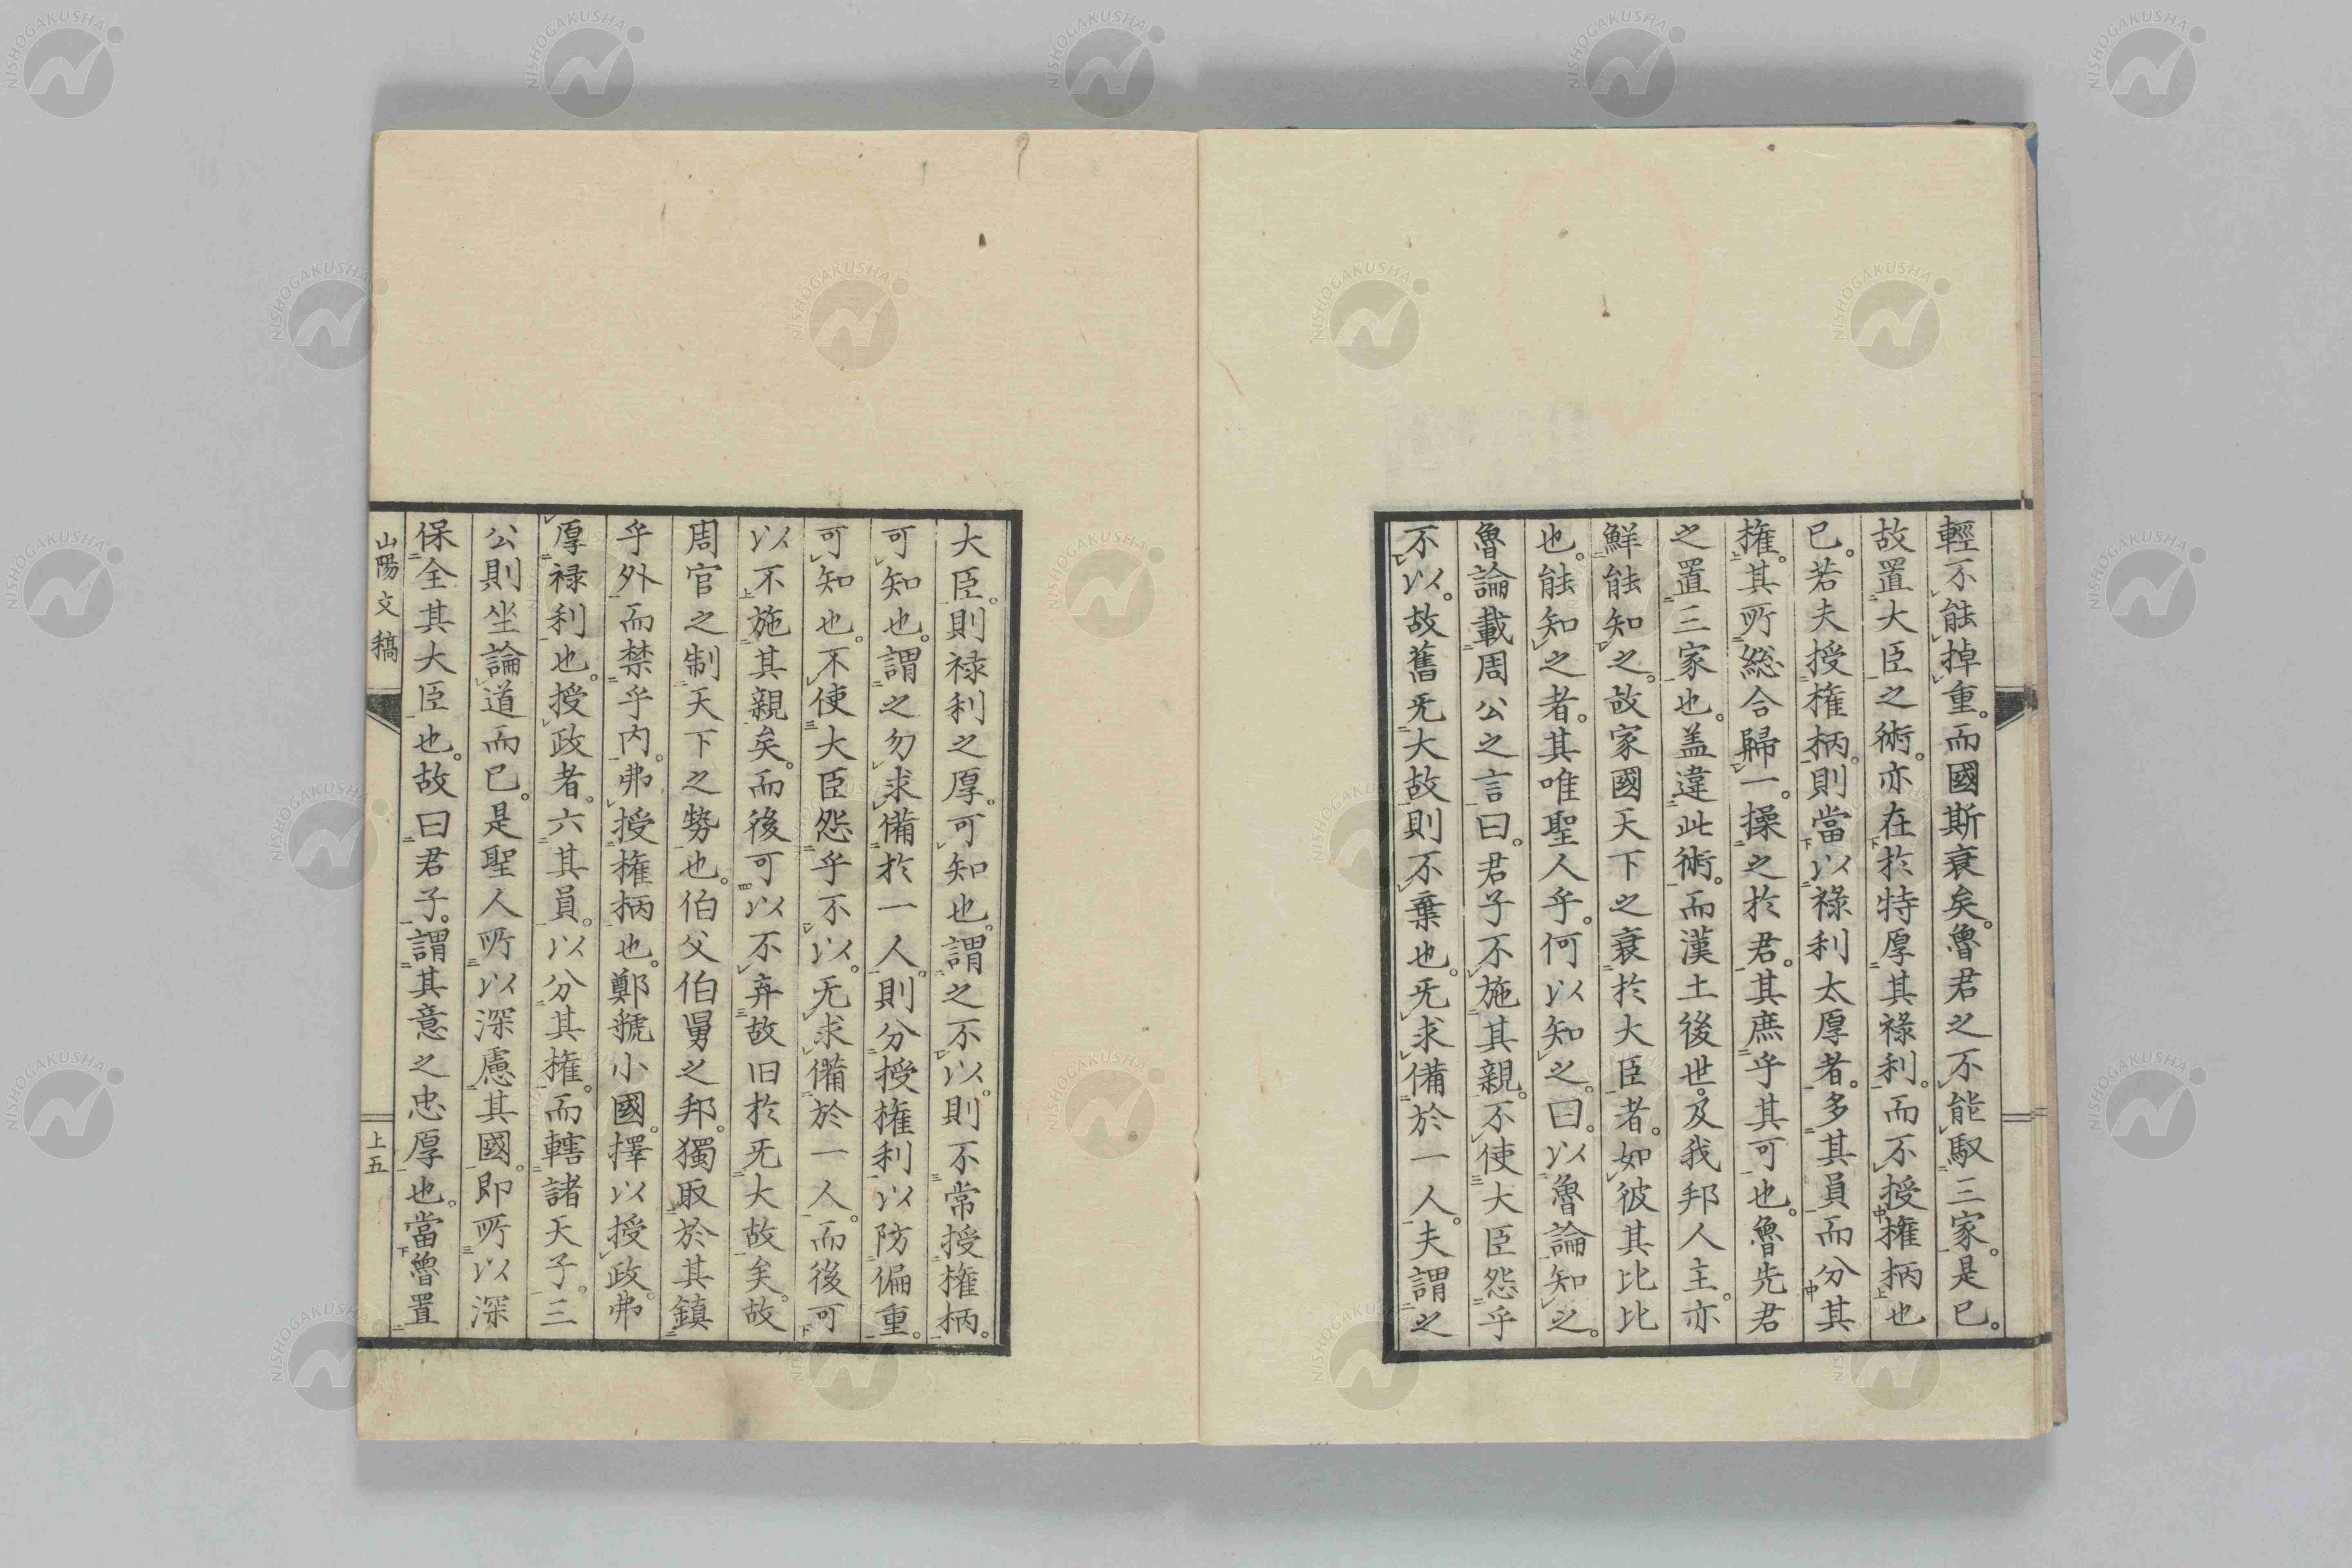 輕不能掉重。而國斯衰矣。魯君之不能馭三家。是已。
故置大臣之術。亦在於特厚其祿利。而不授權柄也
已。若夫授權柄。則當以祿利太厚者。多其員而分其
権。其所総合歸一。操之於君。其庶乎其可也。魯先君
之置三家也。盖違此術。而漢土後世。及我邦人主。亦
鮮能知之。故家國天下之衰於大臣者。如彼其比比
也。能知之者。其唯聖人乎。何以知之。曰。以魯論知之。
魯論載周公之言曰。君子不施其親。不使大臣怨乎
不以。故舊无大故則不棄也。无求備於一人。夫謂之
大臣。則禄利之厚。可知也。謂之不以。則不常授権柄。
可知也。謂之勿求備於一人。則分授権利以防偏重。
可知也。不使大臣怨乎不以。无求備於一人。而後可
以不施其親矣。而後可以不弃故旧於无大故矣。故
周官之制天下之勢也。伯父伯舅之邦。獨取於其鎮
乎外而禁乎内。弗授権柄也。鄭虢小國。擇以授政。弗
厚禄利也。授政者。六其員。以分其権。而轄諸天子。三
公則坐論道而已。是聖人所以深慮其國。即所以深
保全其大臣也。故曰君子。謂其意之忠厚也。當魯置
山陽文稿
上五
NISHOGAKUSHA